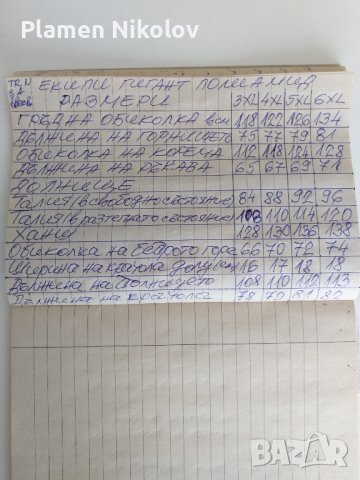 Plamen Nikolov
ЕКИПИ ГИГАНТ ПОЛИАМИД
РАЗМЕРИ 3XL 4XL 5XL 6XL
ГРЪДНА ОБИКОЛКА в см 118 122 126 134
ДЪЛЖИНА НА ГОРНИЩЕТО 75 77 79 81
ОБИКОЛКА НА КОРЕМА 112 118 124 128
ДЪЛЖИНА НА РЪКАВА 65 67 69 71
ДОЛНИЩЕ
Талия (в свободно състояние) 84 88 92 96
Талия (в разтегнато състояние) 108 110 114 120
Ханш 128 130 136 138
Обиколка на бедрото горе 66 70 72 74
Ширина на крачола долу 16 17 18 18
Дължина на долнището 108 110 112 113
Дължина на крачола 78 79 81 82
BAZAR